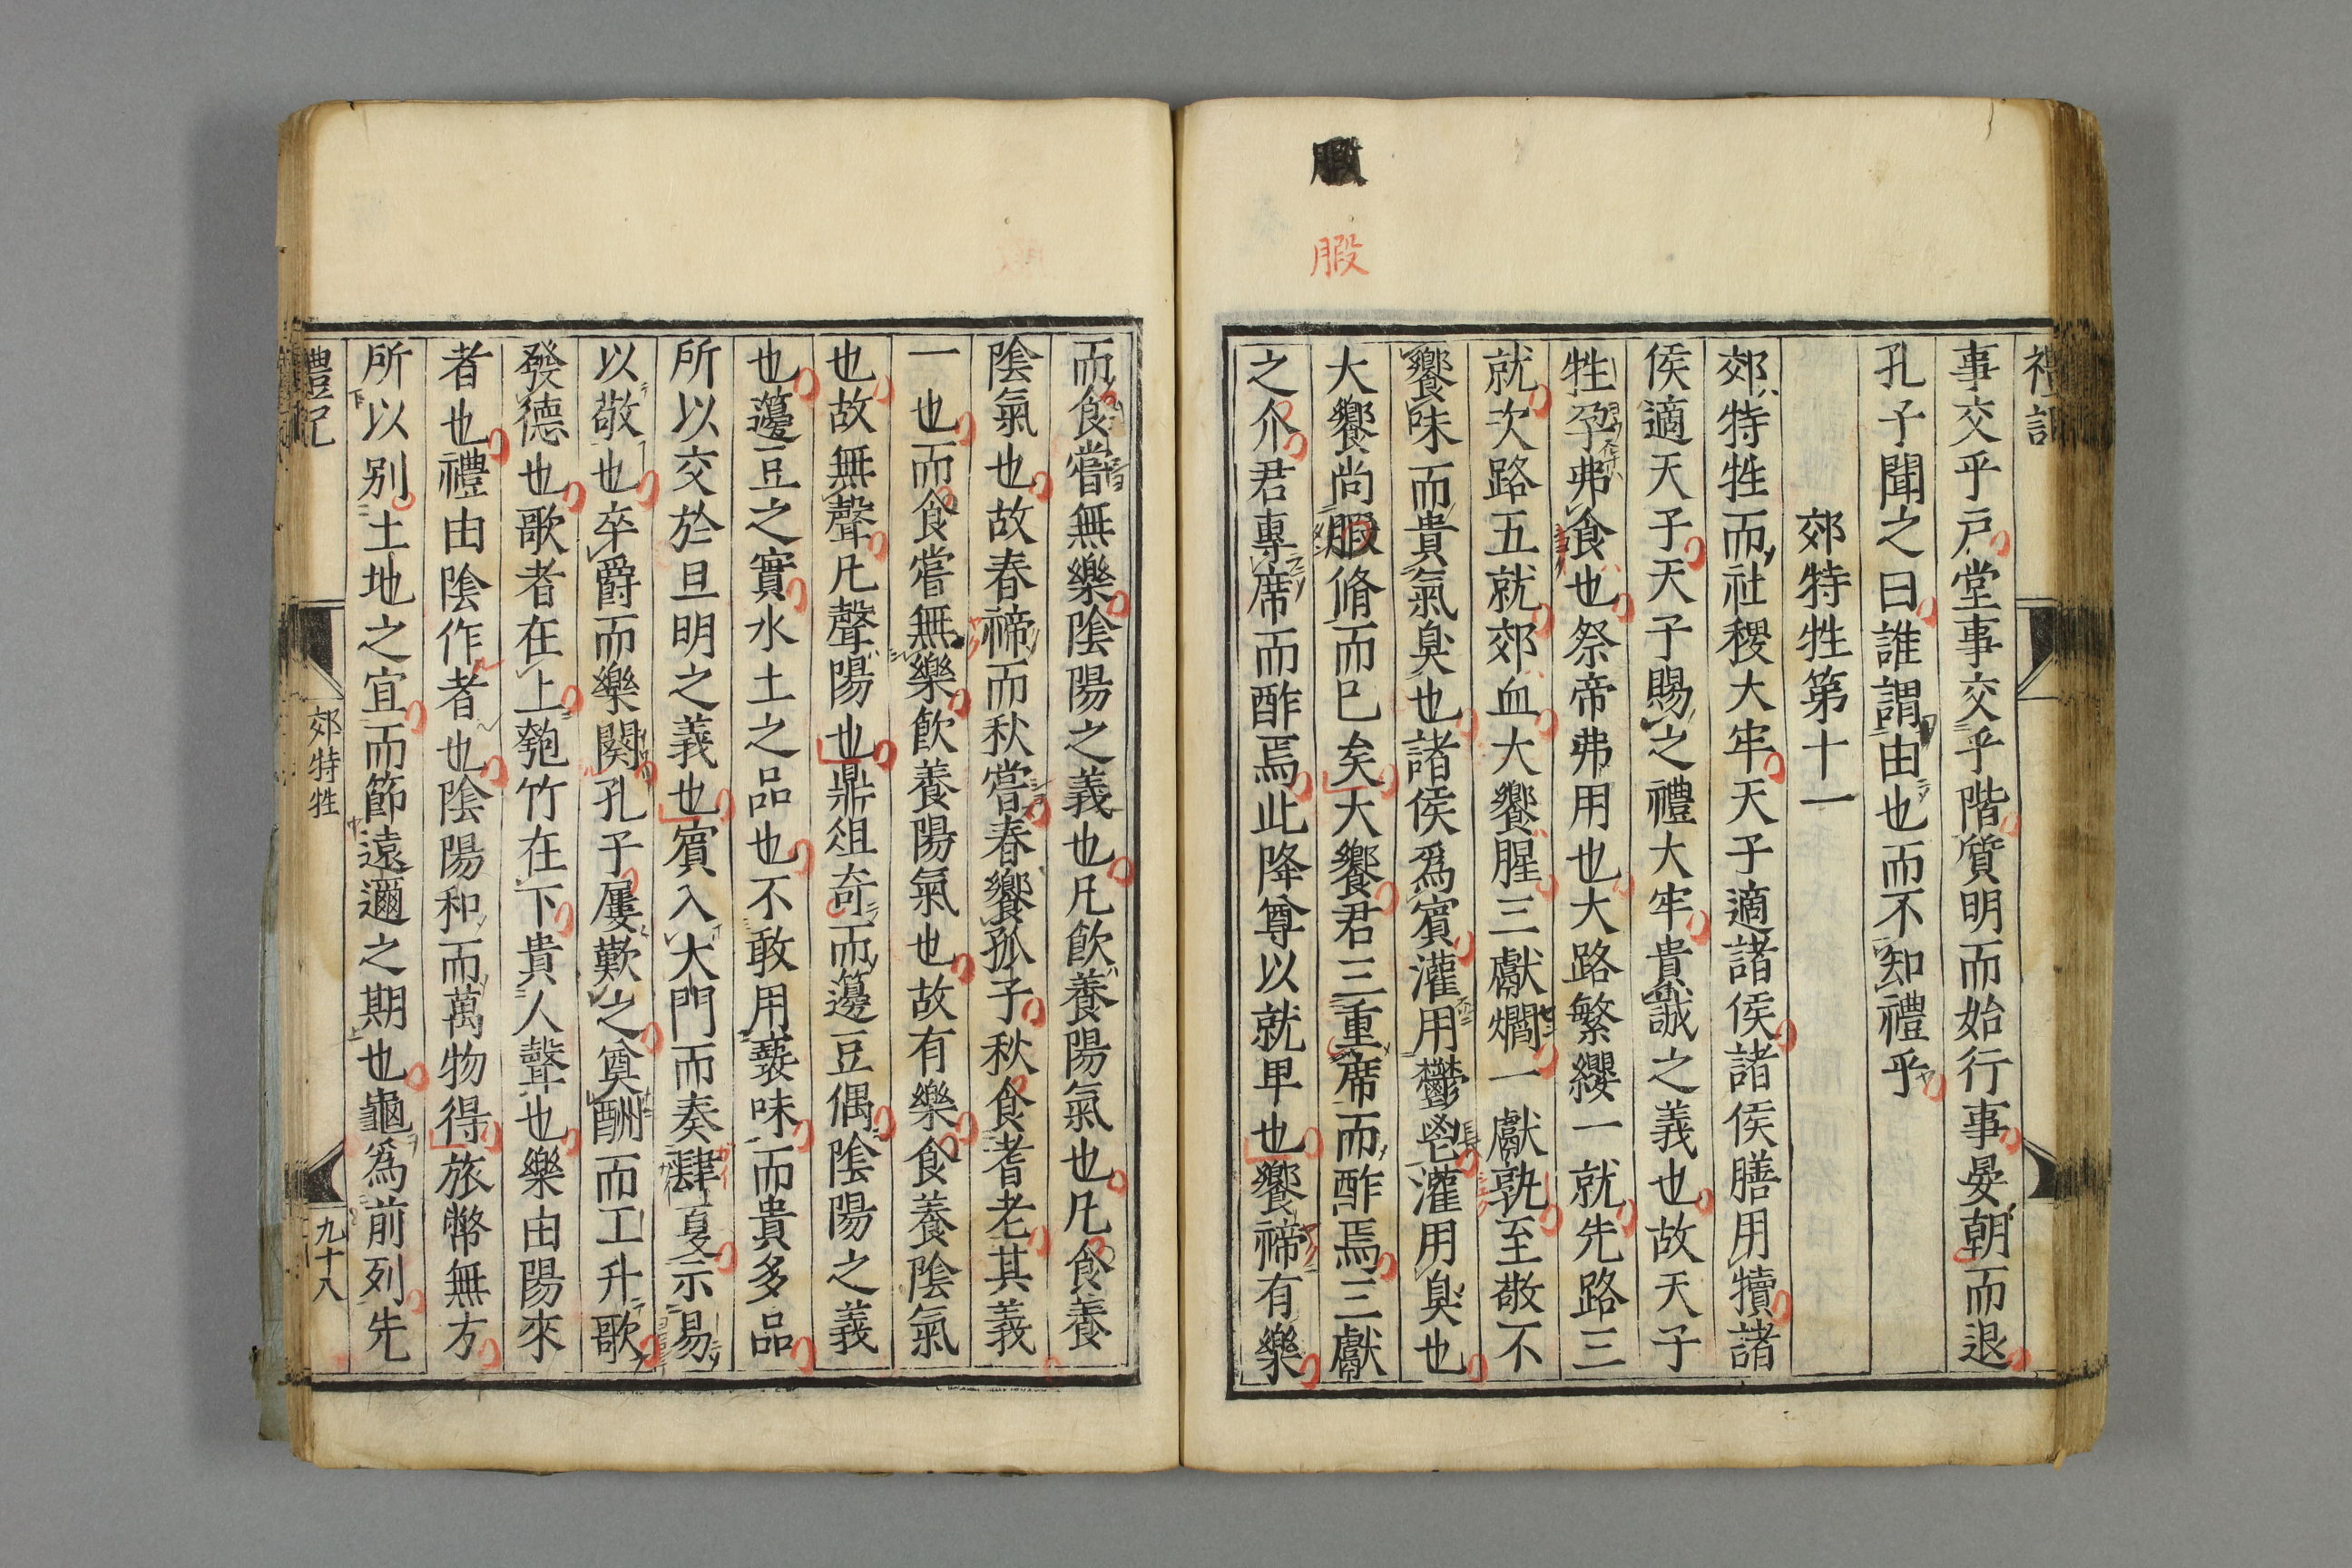 腶
禮記
事交乎戸堂事交乎階質明而始行事晏朝而退
孔子聞之曰誰謂由也而不知禮乎
郊特牲第十一
郊特牲而社稷大牢天子適諸侯諸侯膳用犢諸
侯適天子天子賜之禮大牢貴誠之義也故天子
牲孕弗食也祭帝弗用也大路繁纓一就先路三
就次路五就郊血大饗腥三獻爓一獻孰至敬不
饗味而貴氣臭也諸侯爲賓灌用鬱鬯灌用臭也
大饗尚腶脩而已矣大饗君三重席而酢焉三獻
之介君專席而酢焉此降尊以就卑也饗禘有樂
而食嘗無樂陰陽之義也凡飲養陽氣也凡食養
陰氣也故春禘而秋嘗春饗孤子秋食耆老其義
一也而食嘗無樂飲養陽氣也故有樂食養陰氣
也故無聲凡聲陽也鼎俎奇而籩豆偶陰陽之義
也籩豆之實水土之品也不敢用䙝味而貴多品
所以交於旦明之義也賓入大門而奏肆夏示易
以敬也卒爵而樂闋孔子屢歎之奠酬而工升歌
發德也歌者在上匏竹在下貴人聲也樂由陽來
者也禮由陰作者也陰陽和而萬物得旅幣無方
所以别土地之宜而節遠邇之期也龜爲前列先
禮記
郊特牲
九十八